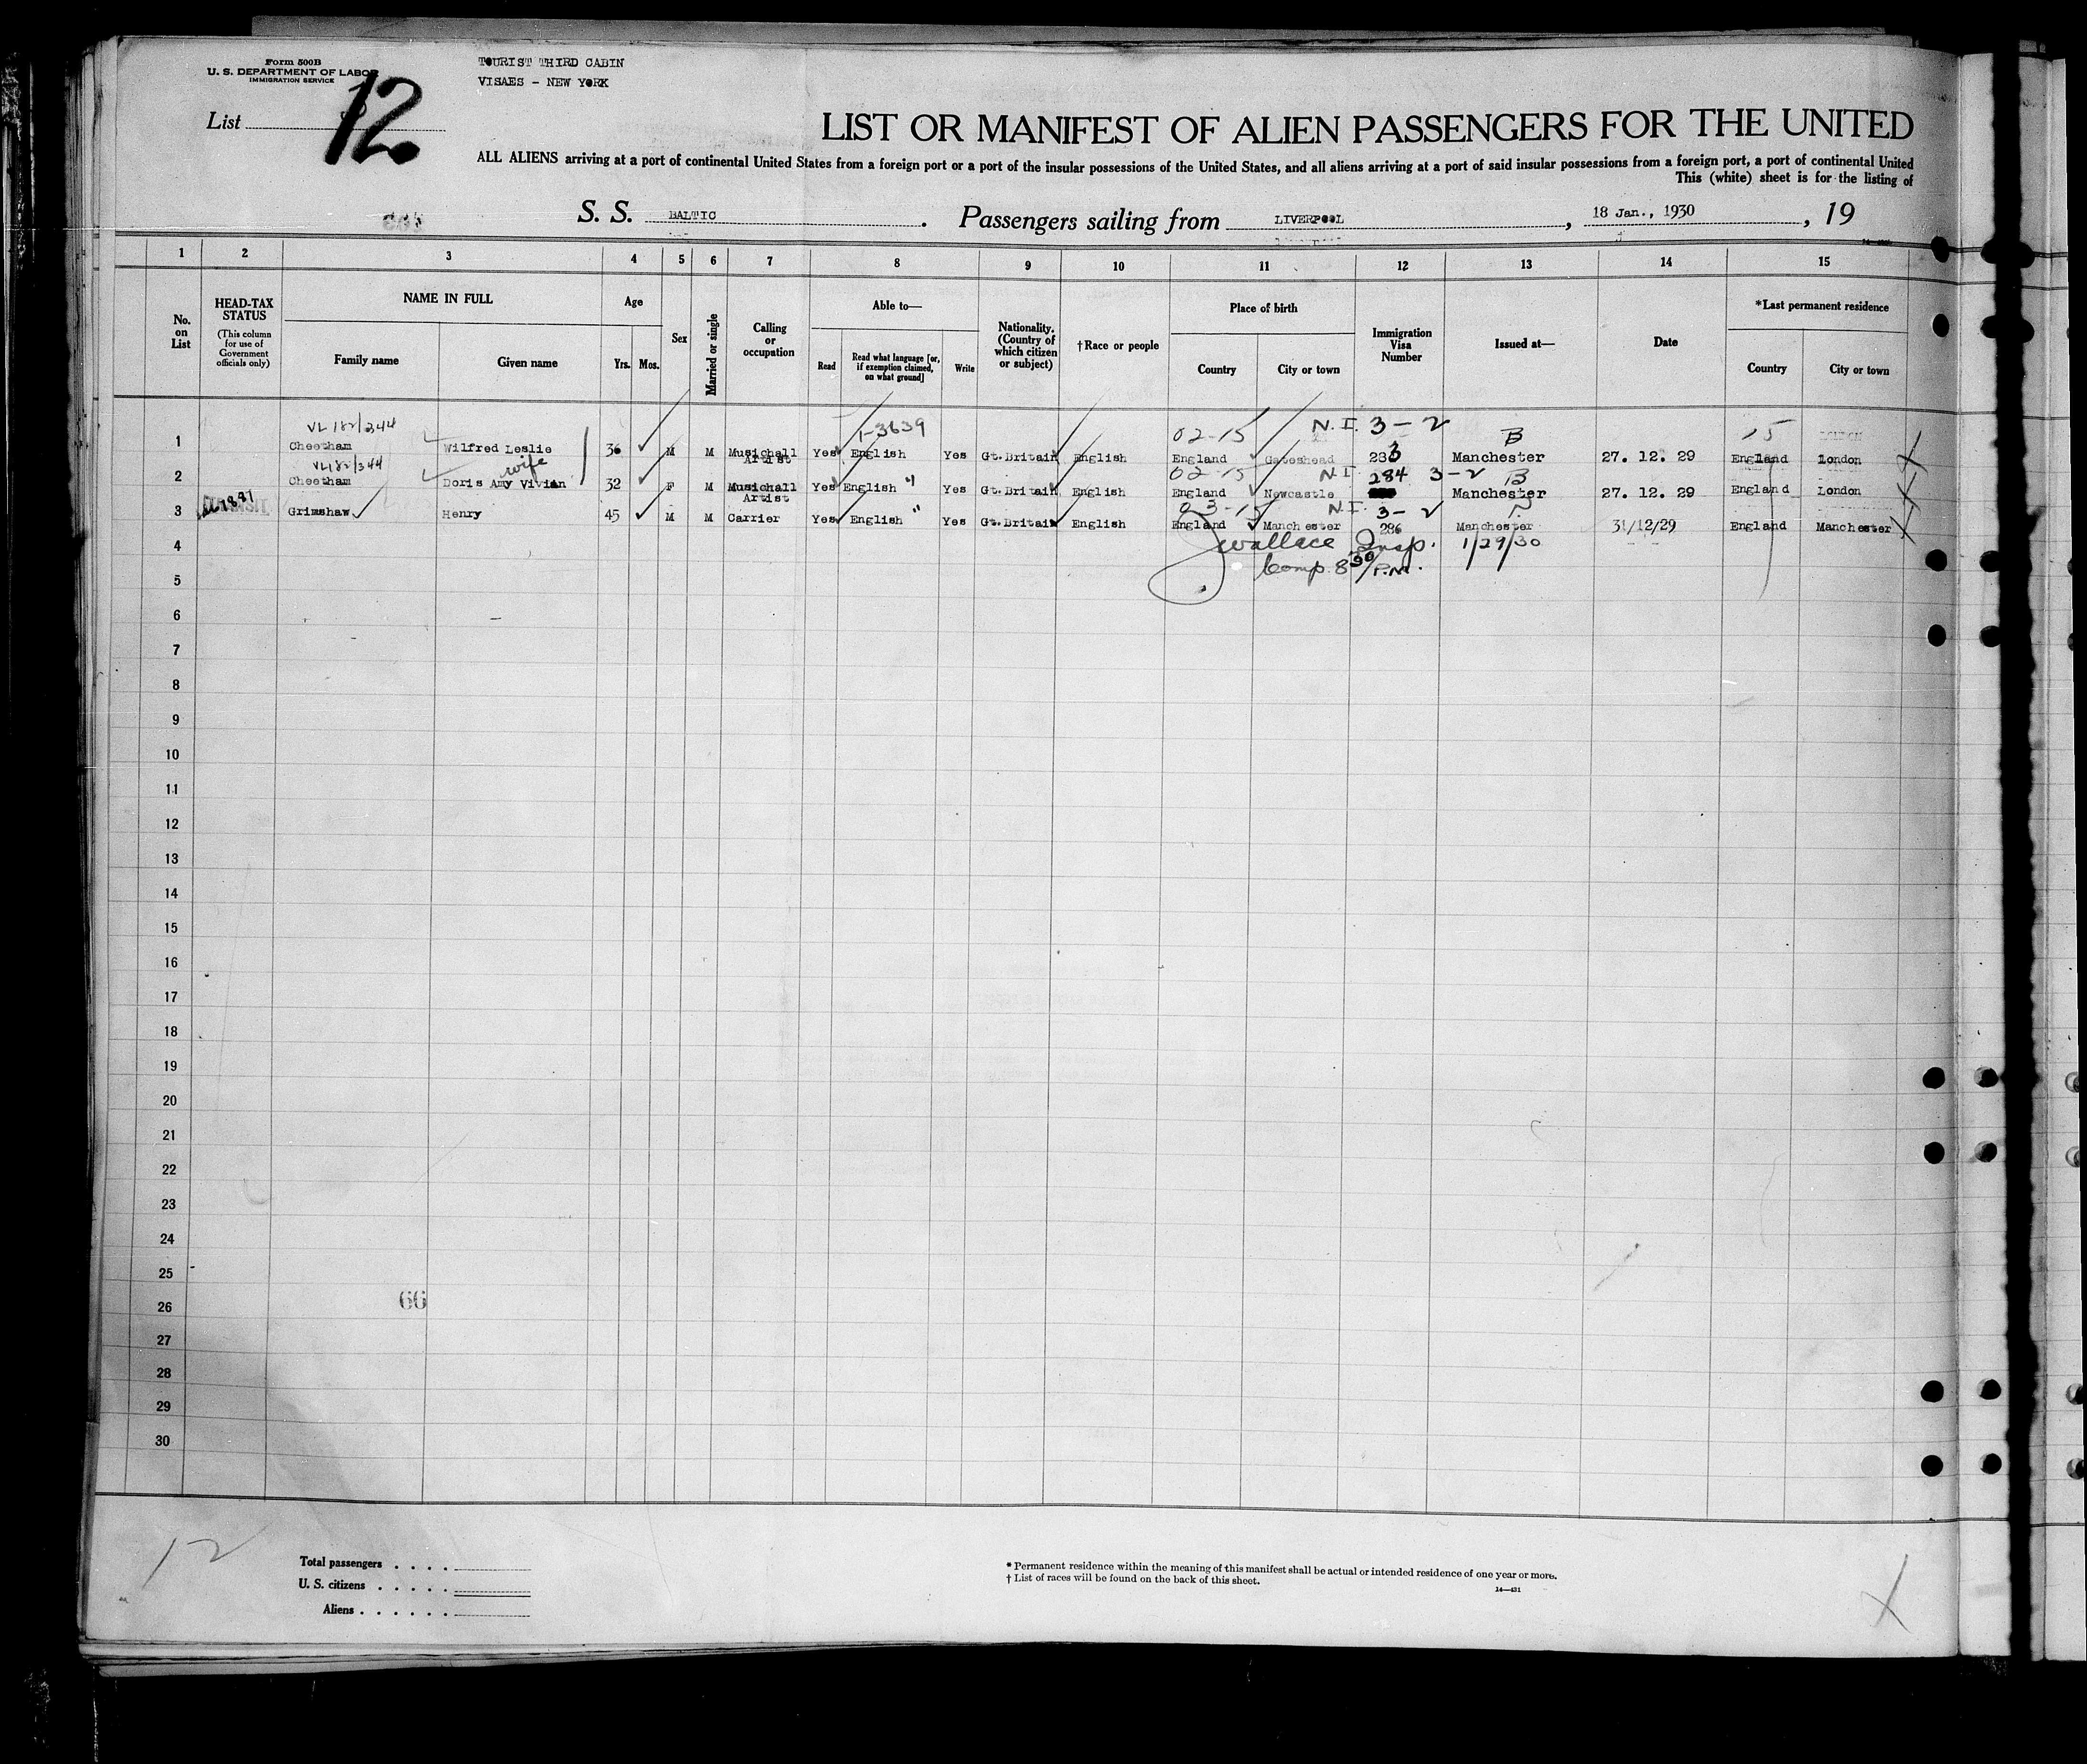 Form 500B
U. S. DEPARTMENT OF LABOR
IMMIGRATION SERVICE
TOURIST THIRD CABIN
VISAES - NEW YORK
List 12
LIST OR MANIFEST OF ALIEN PASSENGERS FOR THE UNITED
ALL ALIENS arriving at a port of continental United States from a foreign port or a port of the insular possessions of the United States, and all aliens arriving at a port of said insular possessions from a foreign port, a port of continental United
This (white) sheet is for the listing of
S. S. BALTIC. Passengers sailing from LIVERPOOL, 18 Jan., 1930, 19
1 2 3 4 5 6 7 8 9 10 11 12 13 14 15
No. on List
HEAD-TAX STATUS
(This column for use of Government officials only)
NAME IN FULL
Family name
Given name
Age
Yrs. Mos.
Sex
Married or single
Calling or occupation
Able to—
Read
Read what language [or, if exemption claimed, on what ground]
Write
Nationality. (Country of which citizen or subject)
†Race or people
Place of birth
Country
City or town
Immigration Visa Number
Issued at—
Date
*Last permanent residence
Country
City or town
VL 182/344 1-3639 02-15 N.I. 3-2 B 15
1 Cheetham Wilfred Leslie 36 M M Musichall Artist Yes English Yes Gt.Britain English England Gateshead 283 Manchester 27. 12. 29 England London
VL182/344 wife 02-15 N.I. 3-2 B
2 Cheetham Doris Amy Vivian 32 F M Musichall Artist Yes English " Yes Gt.Britain English England Newcastle 284 Manchester 27. 12. 29 England London
03-15 N.I. 3-2
3 Grimshaw Henry 45 M M Carrier Yes English " Yes Gt.Britain English England Manchester 286 Manchester 31/12/29 England Manchester
4 Wallace Insp. 1/29/30
Comp. 8 30/P.M.
5
6
7
8
9
10
11
12
13
14
15
16
17
18
19
20
21
22
23
24
25
66
26
27
28
29
30
12
Total passengers . . . .
U. S. citizens . . . . .
Aliens . . . . . .
* Permanent residence within the meaning of this manifest shall be actual or intended residence of one year or more.
† List of races will be found on the back of this sheet.
14—431